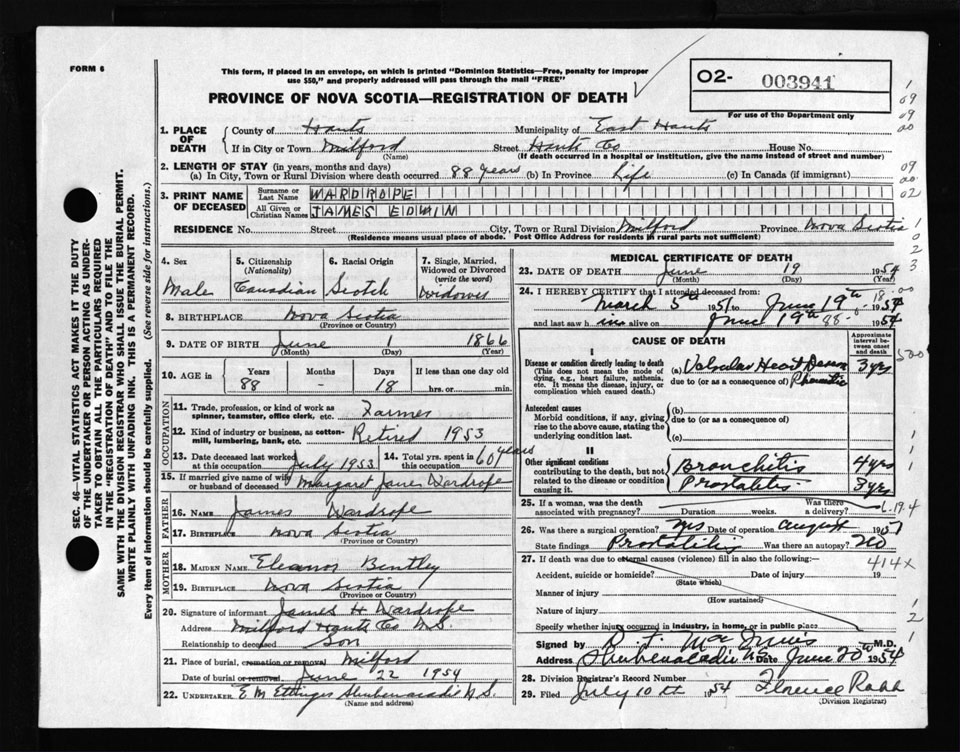 FORM 6
This form, if placed in an envelope, on which is printed "Dominion Statistics—Free, penalty for improper
use $50," and properly addressed will pass through the mail "FREE"
PROVINCE OF NOVA SCOTIA—REGISTRATION OF DEATH
O2- 003941
For use of the Department only
1. PLACE OF DEATH
County of Hants Municipality of East Hants
If in City or Town Milford Street Hants Co House No.
(Name) (If death occurred in a hospital or institution, give the name instead of street and number)
2. LENGTH OF STAY (in years, months and days)
(a) In City, Town or Rural Division where death occurred 88 years (b) In Province Life (c) In Canada (if immigrant)
3. PRINT NAME OF DECEASED
Surname or Last Name WARDROPE
All Given or Christian Names JAMES EDWIN
RESIDENCE No. Street City, Town or Rural Division Milford Province Nova Scotia
(Residence means usual place of abode. Post Office Address for residents in rural parts not sufficient)
4. Sex Male
5. Citizenship (Nationality) Canadian
6. Racial Origin Scotch
7. Single, Married, Widowed or Divorced (write the word) Widower
8. BIRTHPLACE Nova Scotia
(Province or Country)
9. DATE OF BIRTH June 1 1866
(Month) (Day) (Year)
10. AGE in Years Months Days If less than one day old
88 - 18 hrs. or min.
OCCUPATION
11. Trade, profession, or kind of work as spinner, teamster, office clerk, etc. Farmer
12. Kind of industry or business, as cotton-mill, lumbering, bank, etc. Retired 1953
13. Date deceased last worked at this occupation July 1953
14. Total yrs. spent in this occupation 60 years
15. If married give name of wife or husband of deceased Margaret Janes Wardrope
FATHER
16. Name James Wardrope
17. Birthplace Nova Scotia
(Province or Country)
MOTHER
18. Maiden Name Eleanor Bentley
19. Birthplace Nova Scotia
(Province or Country)
20. Signature of informant James H Wardrope
Address Milford Hants Co N.S.
Relationship to deceased Son
21. Place of burial, cremation or removal Milford
Date of burial or removal June 22 1954
22. Undertaker E M Ettinger Shubenacadie N.S.
(Name and address)
MEDICAL CERTIFICATE OF DEATH
23. DATE OF DEATH June 19 1954
(Month) (Day) (Year)
24. I HEREBY CERTIFY that I attended deceased from:
March 5th 1951 to June 19th 1954
and last saw h im alive on June 19th 1954
CAUSE OF DEATH
Approximate interval between onset and death
I
Disease or condition directly leading to death
(This does not mean the mode of dying, e.g., heart failure, asthenia, etc. It means the disease, injury, or complication which caused death.)
(a) Valvular Heart Disease 3 yrs
due to (or as a consequence of) Rheumatic
Antecedent causes
Morbid conditions, if any, giving rise to the above cause, stating the underlying condition last.
(b)
due to (or as a consequence of)
(c)
II
Other significant conditions
contributing to the death, but not related to the disease or condition causing it.
Bronchitis 4 yrs
Prostatitis 3 yrs
25. If a woman, was the death associated with pregnancy? Duration weeks. Was there a delivery?
26. Was there a surgical operation? Yes Date of operation August 1951
State findings Prostatitis Was there an autopsy? No
27. If death was due to external causes (violence) fill in also the following:
Accident, suicide or homicide? Date of injury 19
(State which)
Manner of injury
(How sustained)
Nature of injury
Specify whether injury occurred in industry, in home, or in public place
Signed by M.D.
Address Shubenacadie N.S. Date June 20th 1954
28. Division Registrar's Record Number
29. Filed July 10th 1954 Florence Robb
(Division Registrar)
SEC. 46—VITAL STATISTICS ACT MAKES IT THE DUTY
OF THE UNDERTAKER OR PERSON ACTING AS UNDER-
TAKER TO OBTAIN ALL THE PARTICULARS REQUIRED
IN THE "REGISTRATION OF DEATH" AND TO FILE THE
SAME WITH THE DIVISION REGISTRAR WHO SHALL ISSUE THE BURIAL PERMIT.
WRITE PLAINLY WITH UNFADING INK. THIS IS A PERMANENT RECORD.
Every item of information should be carefully supplied. (See reverse side for instructions.)
414x